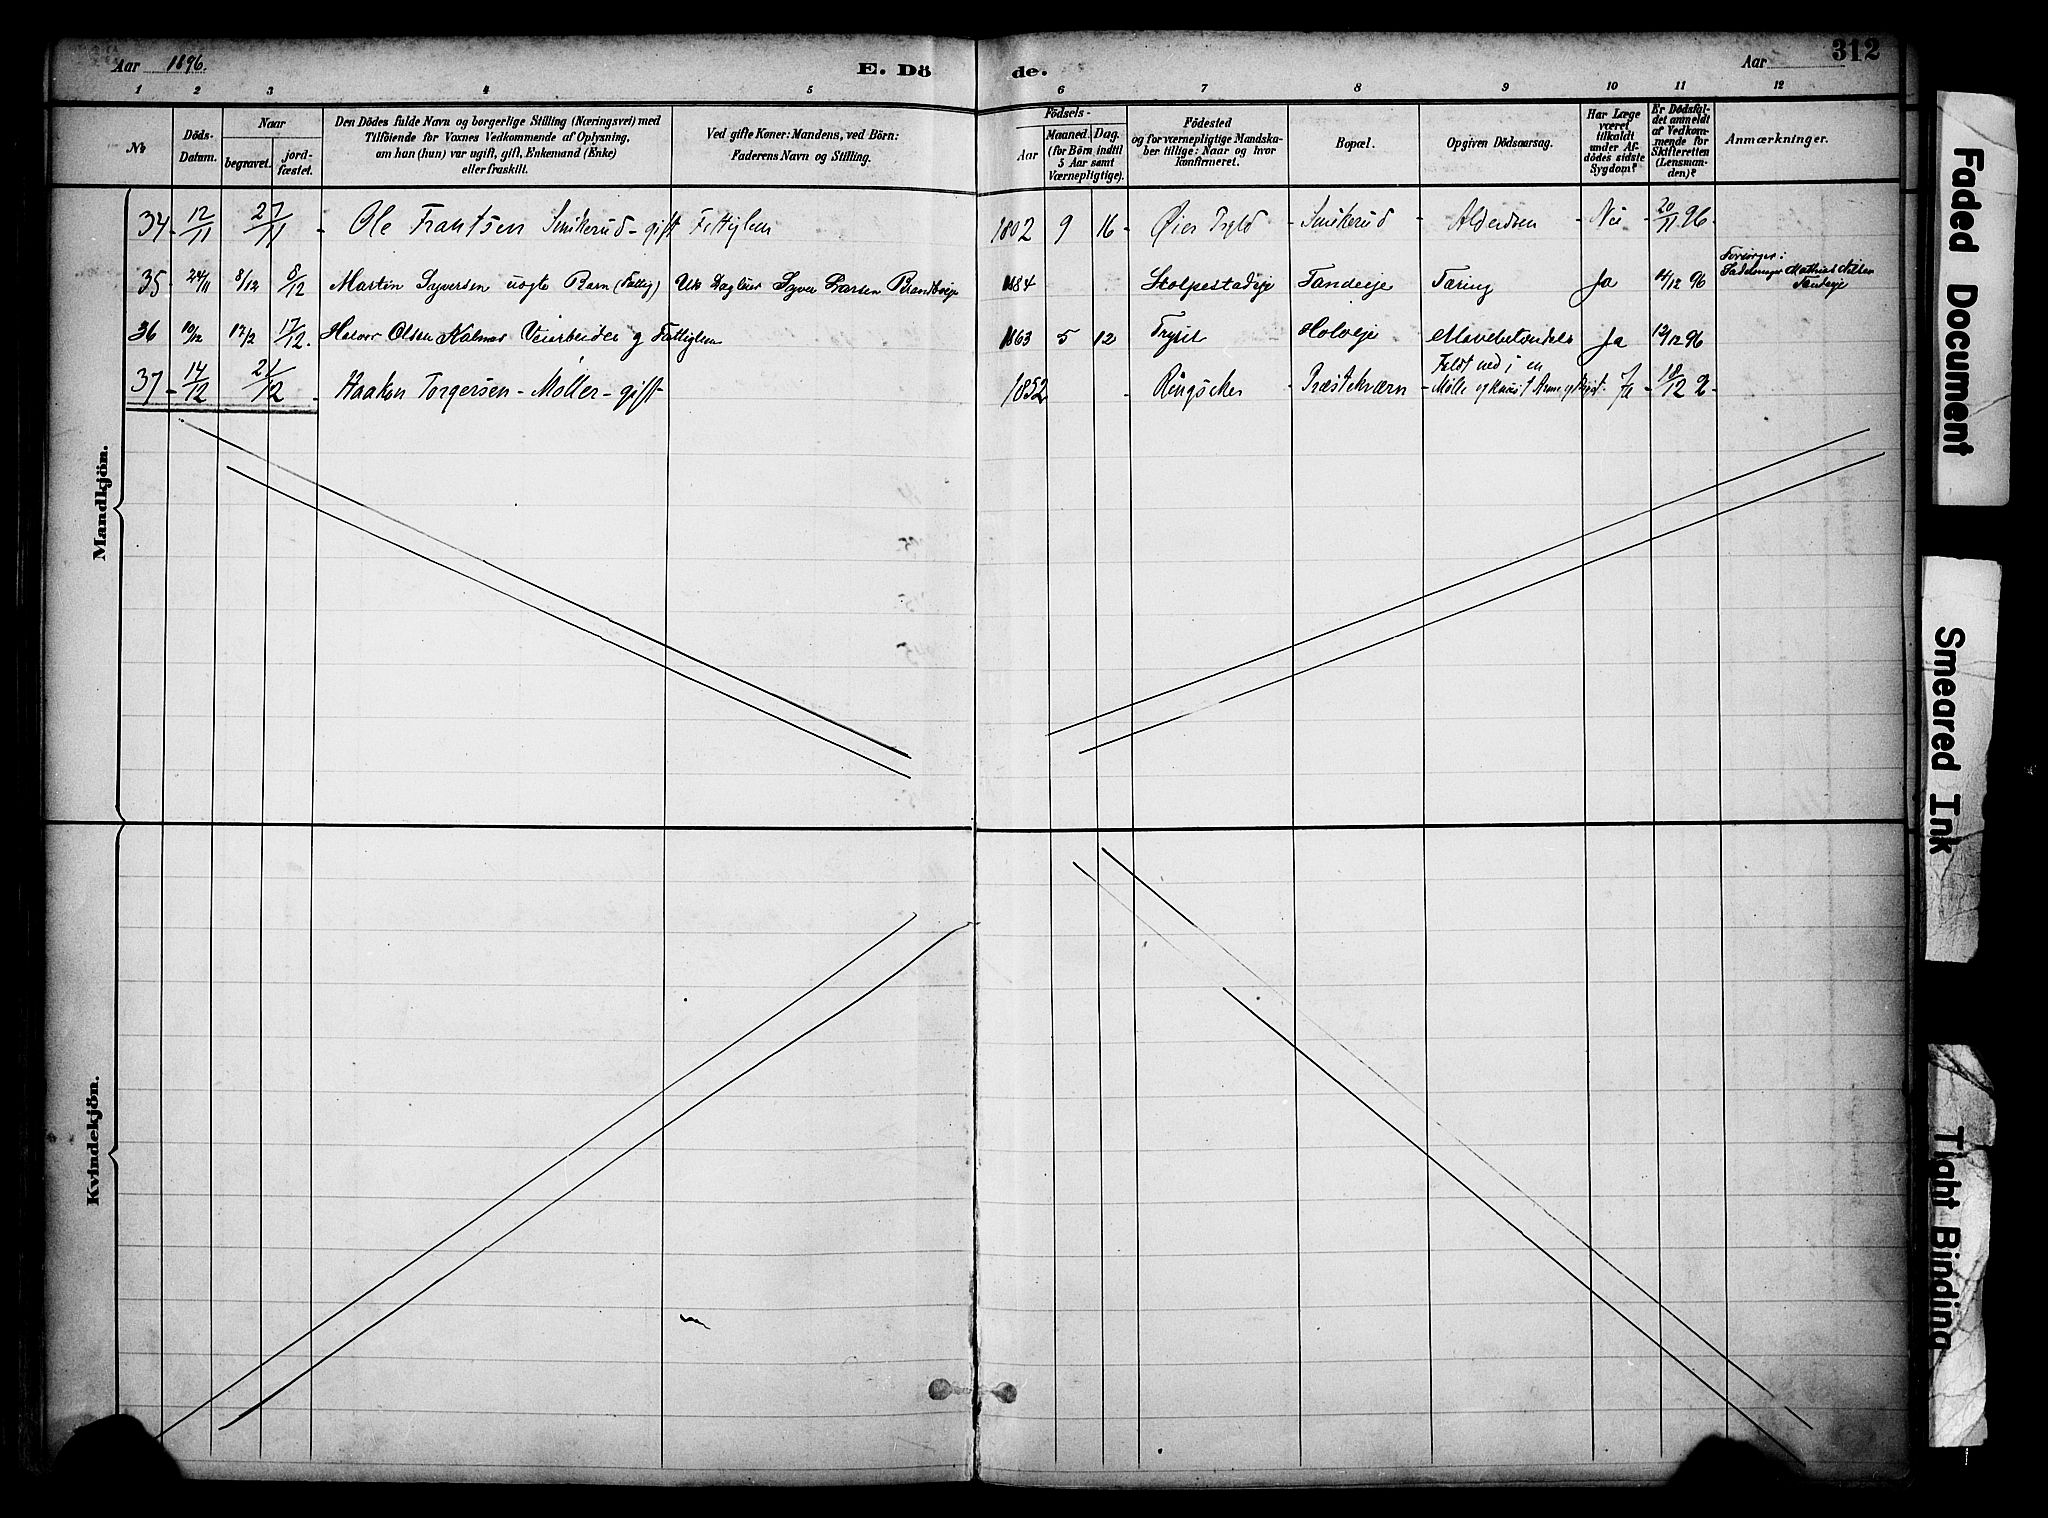 Aar 1896.
E. Dö de.
Aar
312
1 2 3 4 5 6 7 8 9 10 11 12
No
Döds-Datum.
Naar
begravet.
jord-fæstet.
Den Dödes fulde Navn og borgerlige Stilling (Næringsvei) med
Tilföiende for Voxnes Vedkommende af Oplysning,
om han (hun) var ugift, gift, Enkemand (Enke)
eller fraskilt.
Ved gifte Koner: Mandens, ved Börn:
Faderens Navn og Stilling.
Födsels-
Aar
Maaned. Dag.
(for Börn indtil
5 Aar samt
Værnepligtige).
Födested
og for værnepligtige Mandska-
ber tillige: Naar og hvor
konfirmeret.
Bopæl.
Opgiven Dödsaarsag.
Har Læge
været
tilkaldt
under Af-
dödes sidste
Sygdom?
Er Dödsfal-
det anmeldt
af Vedkom-
mende for
Skifteretten
(Lensman-
den)?
Anmærkninger.
34 - 12/11 27/11 - Ole Frantsen Smikerud - gift 1802 9 16 - Öier - Smikerud - - Nei - 20/11 96 -
35 - 24/11 8/12 8/12 Martin Syversen Barn (Fattig) Syver Larsen 1884 Stolpestadeie Tandeeie Tæring Ja 14/12 96
36 10/12 17/12 17/12. Halvor Olsen Veiarbeider og Fattiglem 1863 5 12 Trysil Holveie Ja 12/12 96
Feldt ned i en
37 - 14/12 21/12 - Haakon Torgersen - Möller - gift 1852 - Ringsaker - Præstekværn - Mölle Ja - 18/12
Mandkjön.
Kvindekjön.
Faded Document
Smeared Ink
Tight Binding